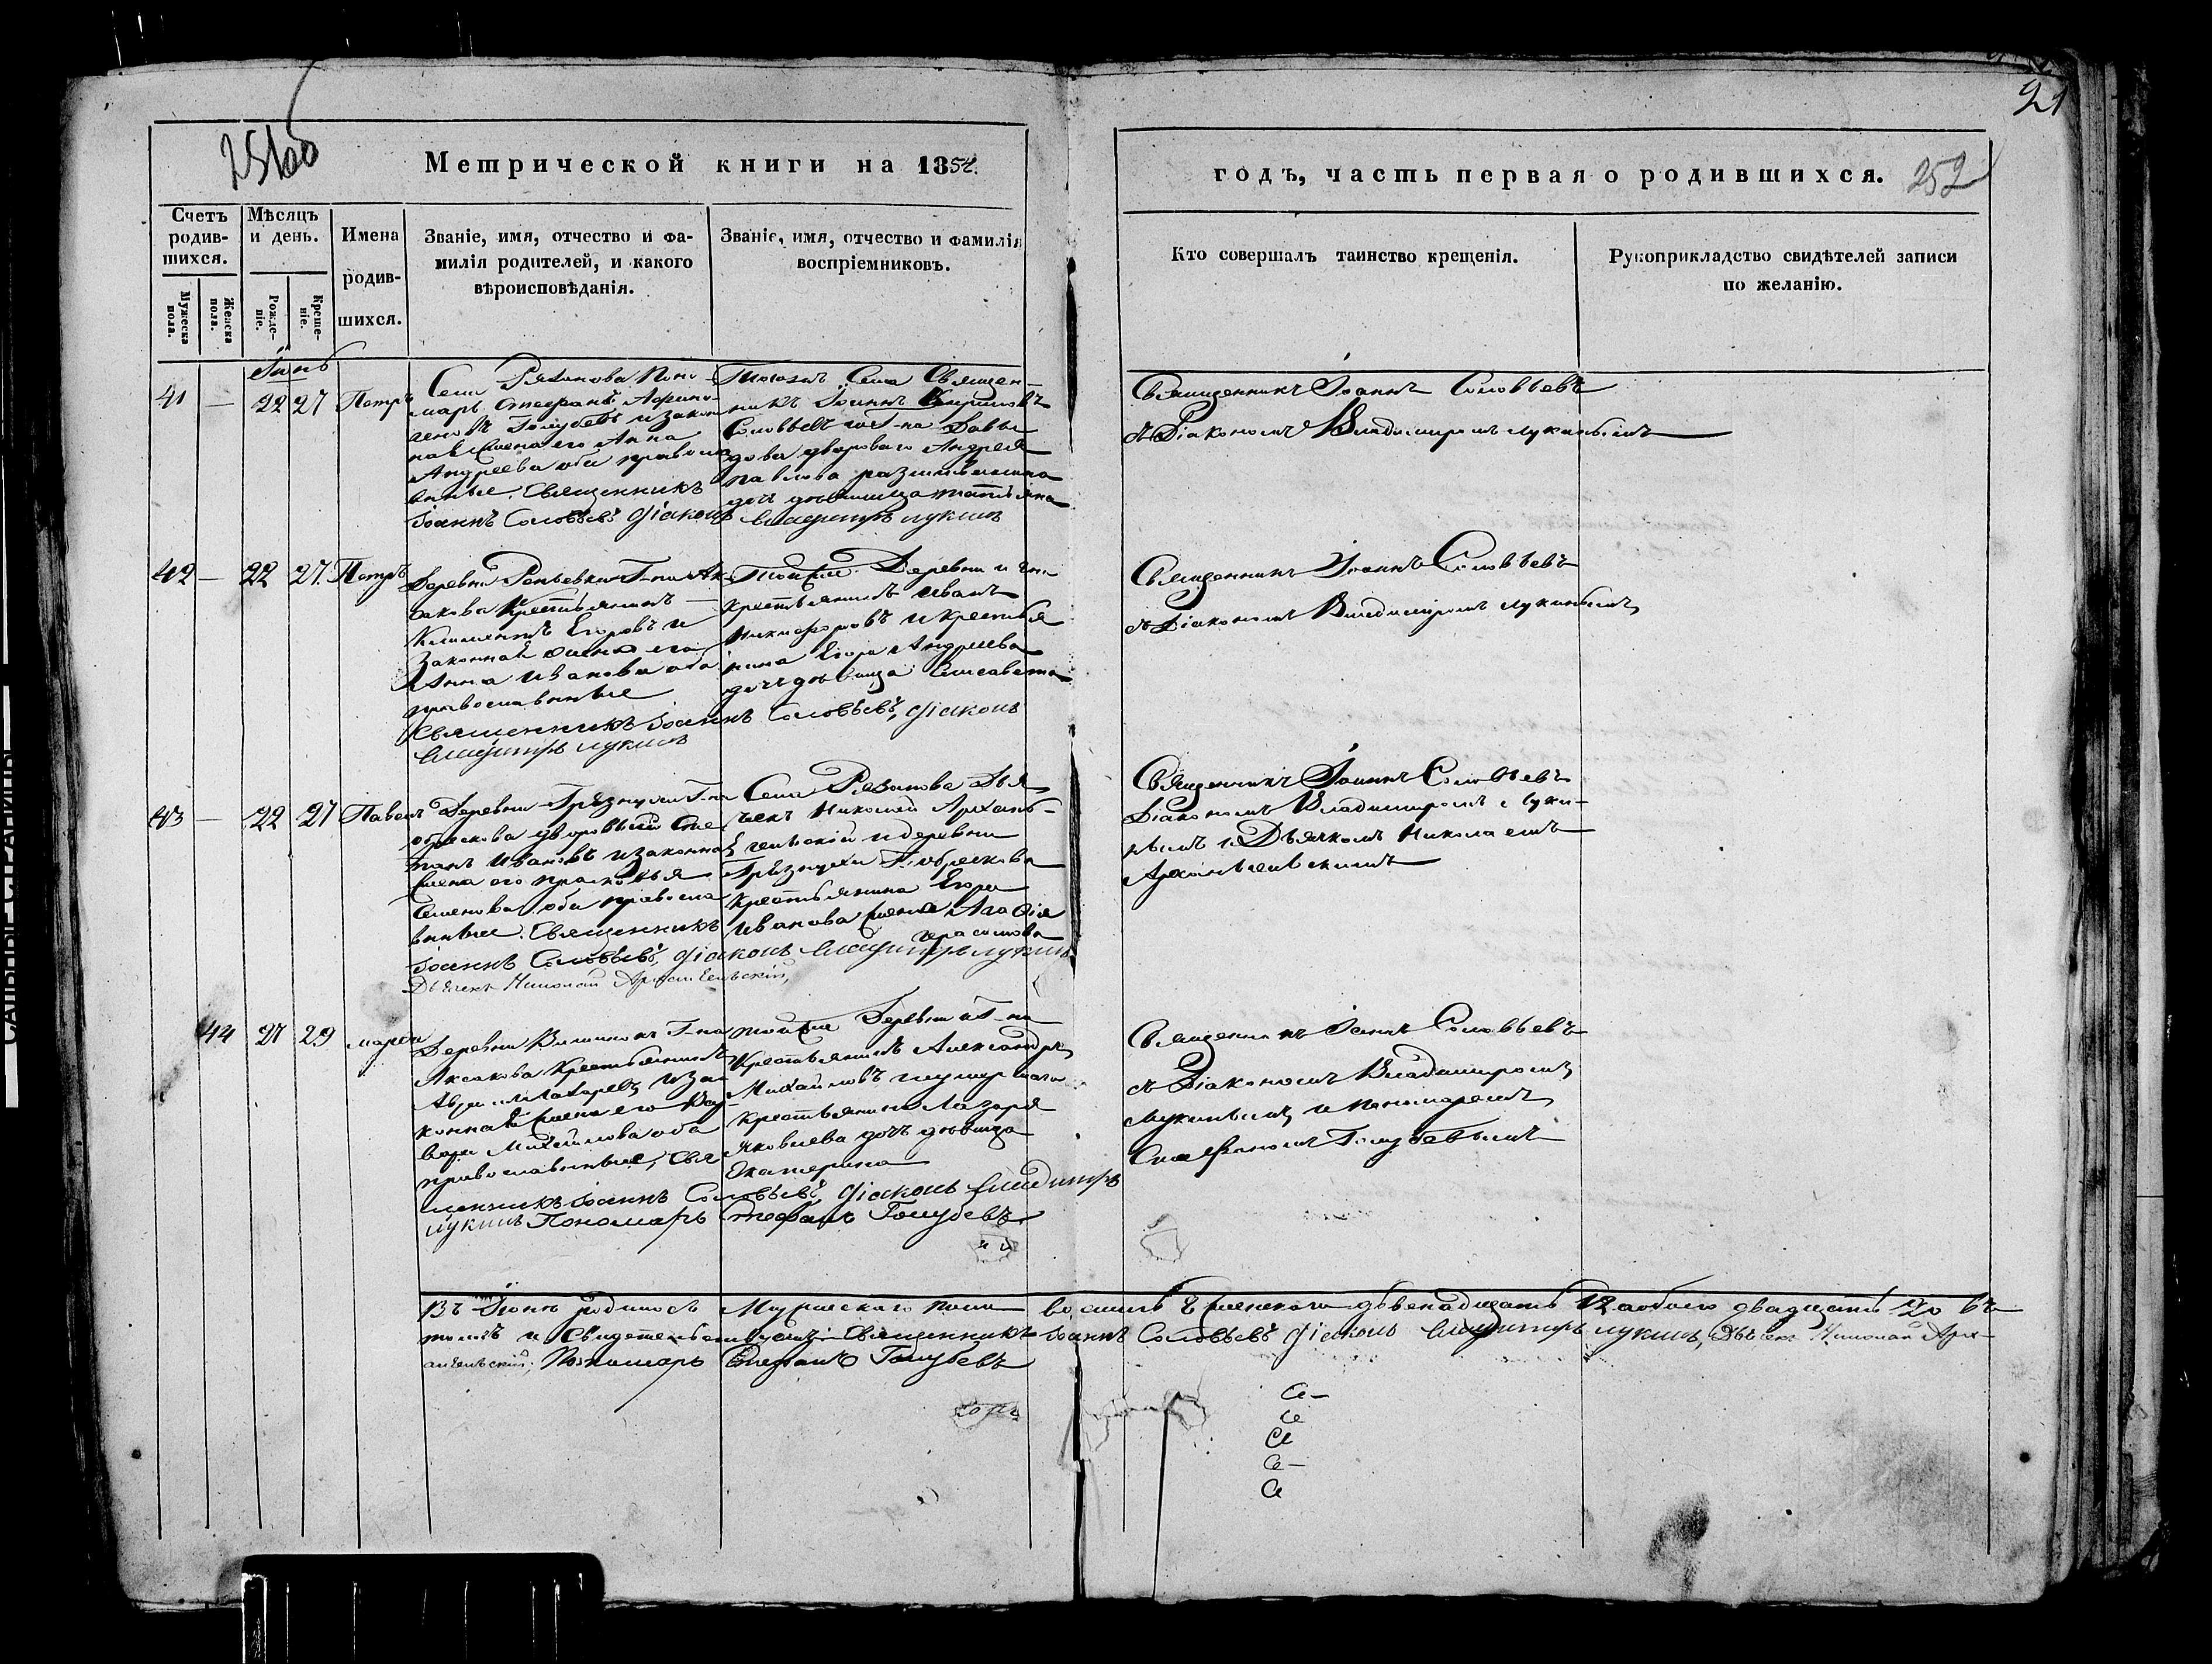 21
Метрической книги на 1854.
годъ, часть первая о родившихся. 252
Счетъ родив-шихся.
Мужеска пола.
Женска пола.
Мѣсяцъ и день.
Рожде-ніе.
Креще-ніе.
Имена родив-шихся.
Званіе, имя, отчество и фа-
милія родителей, и какого
вѣроисповѣданія.
Званіе, имя, отчество и фамилія
воспріемниковъ.
Кто совершалъ таинство крещенія.
Рукоприкладство свидѣтелей записи
по желанію.
Іюнь
41 — 22 27 Петръ
Села Рязанова Поно-
марь Стефанъ
Голубевъ и закон
ная жена его Анна
Андреева оба правосла
вные. Священникъ
Іоаннъ Соловьевъ Діаконъ Владимиръ Лукинъ
Тогожъ Села Священ-
никъ Іоаннъ
Соловьевъ и Г-на Давы
дова двороваго Андрея
Павлова
дочь девица Татьяна
Священникъ Іоаннъ Соловьевъ
съ Діакономъ Владимиромъ Лукинымъ
42 — 22 27. Петръ
Деревни Г-на Ак
сакова Крестьянинъ
Егоровъ и
Законная жена его
Анна Иванова оба
православные
Священникъ Іоаннъ Соловьевъ, Діаконъ
Владимиръ Лукинъ
Той же Деревни и Г-на
Крестьянинъ Иванъ
Никифоровъ и крестья
нина Егора Андреева
дочь девица Елисавета
Священникъ Іоаннъ Соловьевъ
съ Діакономъ Владимиромъ Лукинымъ
43 — 22 27 Павелъ
Деревни Грязнухи Г-на
Обрескова дворовый Сте
панъ Ивановъ и законная
жена его Прасковья
Семенова оба правосла
вные. Священникъ
Іоаннъ Соловьевъ, Діаконъ Владимиръ Лукинъ
Дьячекъ Николай Архангельскій,
Села Рязанова Дья
чекъ Николай Архан-
гельскій и деревни
Грязнухи Г. Обрескова
крестьянина Егора
Иванова жена Агафія
Герасимова
Священникъ Іоаннъ Соловьевъ
Діакономъ Владимиромъ Луки-
нымъ и Дьячкомъ Николаемъ
Архангельскимъ
44 27 29 Марѳа
Деревни Г-на
Аксакова Крестьянинъ
и за
конная жена его Вар
вара Михайлова оба
православные, Свя
щенникъ Іоаннъ Соловьевъ, Діаконъ Владимиръ
Лукинъ Пономарь Стефанъ Голубевъ
той же Деревни и Г-на
Крестьянинъ Александръ
Михайловъ и умершаго
крестьянина Лазаря
Яковлева дочь девица
Екатерина
Священникъ Іоаннъ Соловьевъ
съ Діакономъ Владимиромъ
Лукинымъ и пономаремъ
Стефаномъ Голубевымъ
Въ Іюнѣ родилось Мужескаго пола восемь 8 женскаго двенадцать 12 а обоего двадцать 20 въ
томъ и свидетельствуемъ Священникъ Іоаннъ Соловьевъ Діаконъ Владимиръ Лукинъ, Дьячекъ Николай Арх-
ангельскій; Пономарь Стефанъ Голубевъ